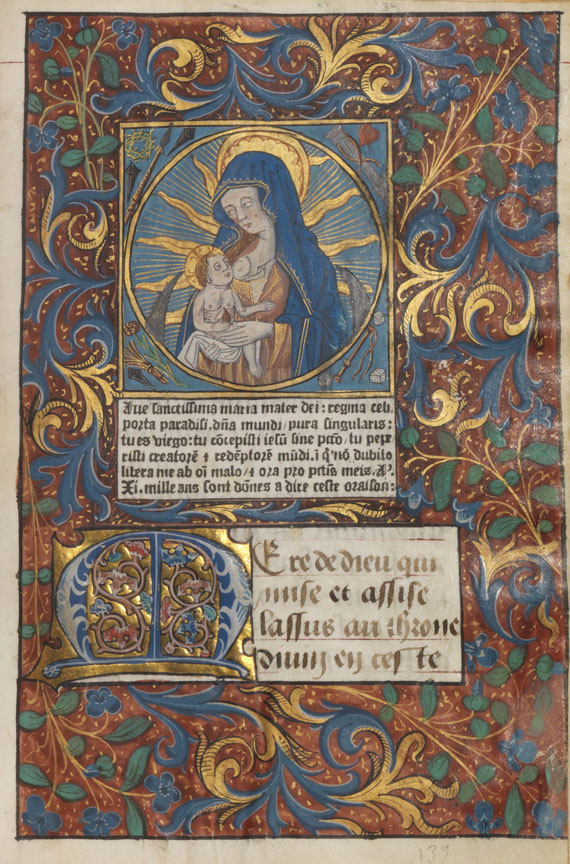 Aue sanctissima maria mater dei: regina celi.
porta paradisi. dña mundi / pura singularis:
tu es virgo: tu cõcepisti iesũ sine pctõ / tu pepe
risti creatorẽ ⁊ redẽptorẽ mũdi. ĩ q̃ nõ dubito
libera me ab oĩ malo / ⁊ ora pro pctis meis. Aẽ.
Xi. mille ans sont dõnes a dire ceste oraison:
M Ere de dieu qui
mise et assise
lassus au throne
diuin en ceste
139